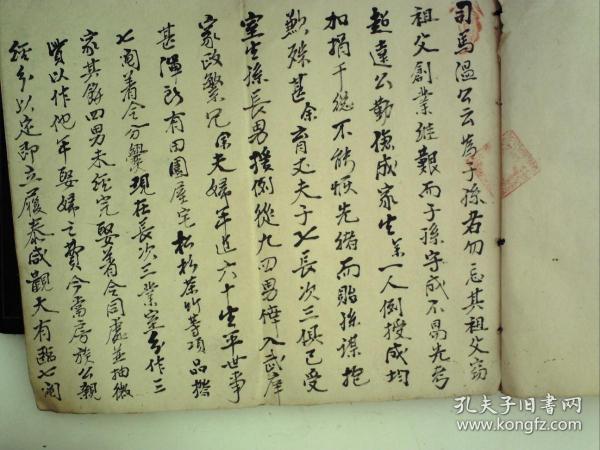 司馬温公云為子孫者勿忘其祖父窃
祖父創業維艱而子孫守成不易先考
超遠公勤儉成家生業一人例授成均
加捐千総不能恢先緒而貽孫謀抱
歉殊甚余育丈夫子七長次三俱已受
室生孫長男援例從九四男倖入武庠
家政繁冗余夫婦年近六十生平世事
甚温所有田園屋宅松杉茶竹等項品搭
七阄着令分爨現在長次三業室分作三
家其餘四男未經完娶着令同處並抽微
貲以作他年娶婦之費今當房族公親
經分以定即立履泰咸觀大有臨七阄
孔夫子旧書网
www.kongfz.com